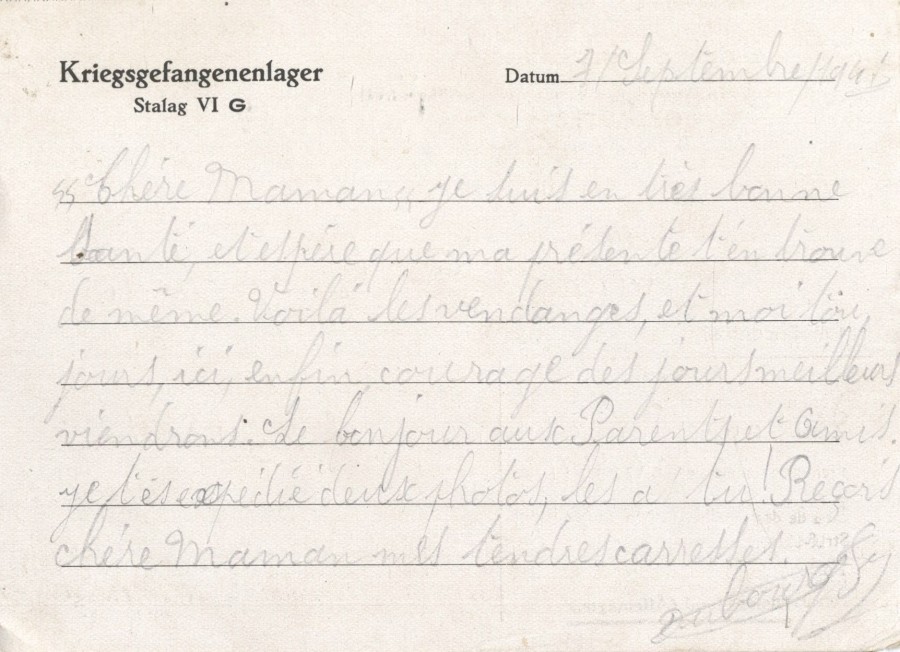 Kriegsgefangenenlager
Stalag VI G
Datum 7/Septembre/194
"Chère Maman" je suis en très bonne
Santé, et espère que ma présente t'én trouve
de même. Voilà les vendanges, et moi tou
jours, ici, enfin, courage des jours meilleurs
viendrons. Le bonjour aux Parents, et Amis.
je t'és expédié deux photos, les a' tu! Reçois
chére Maman mes tendres carresses.